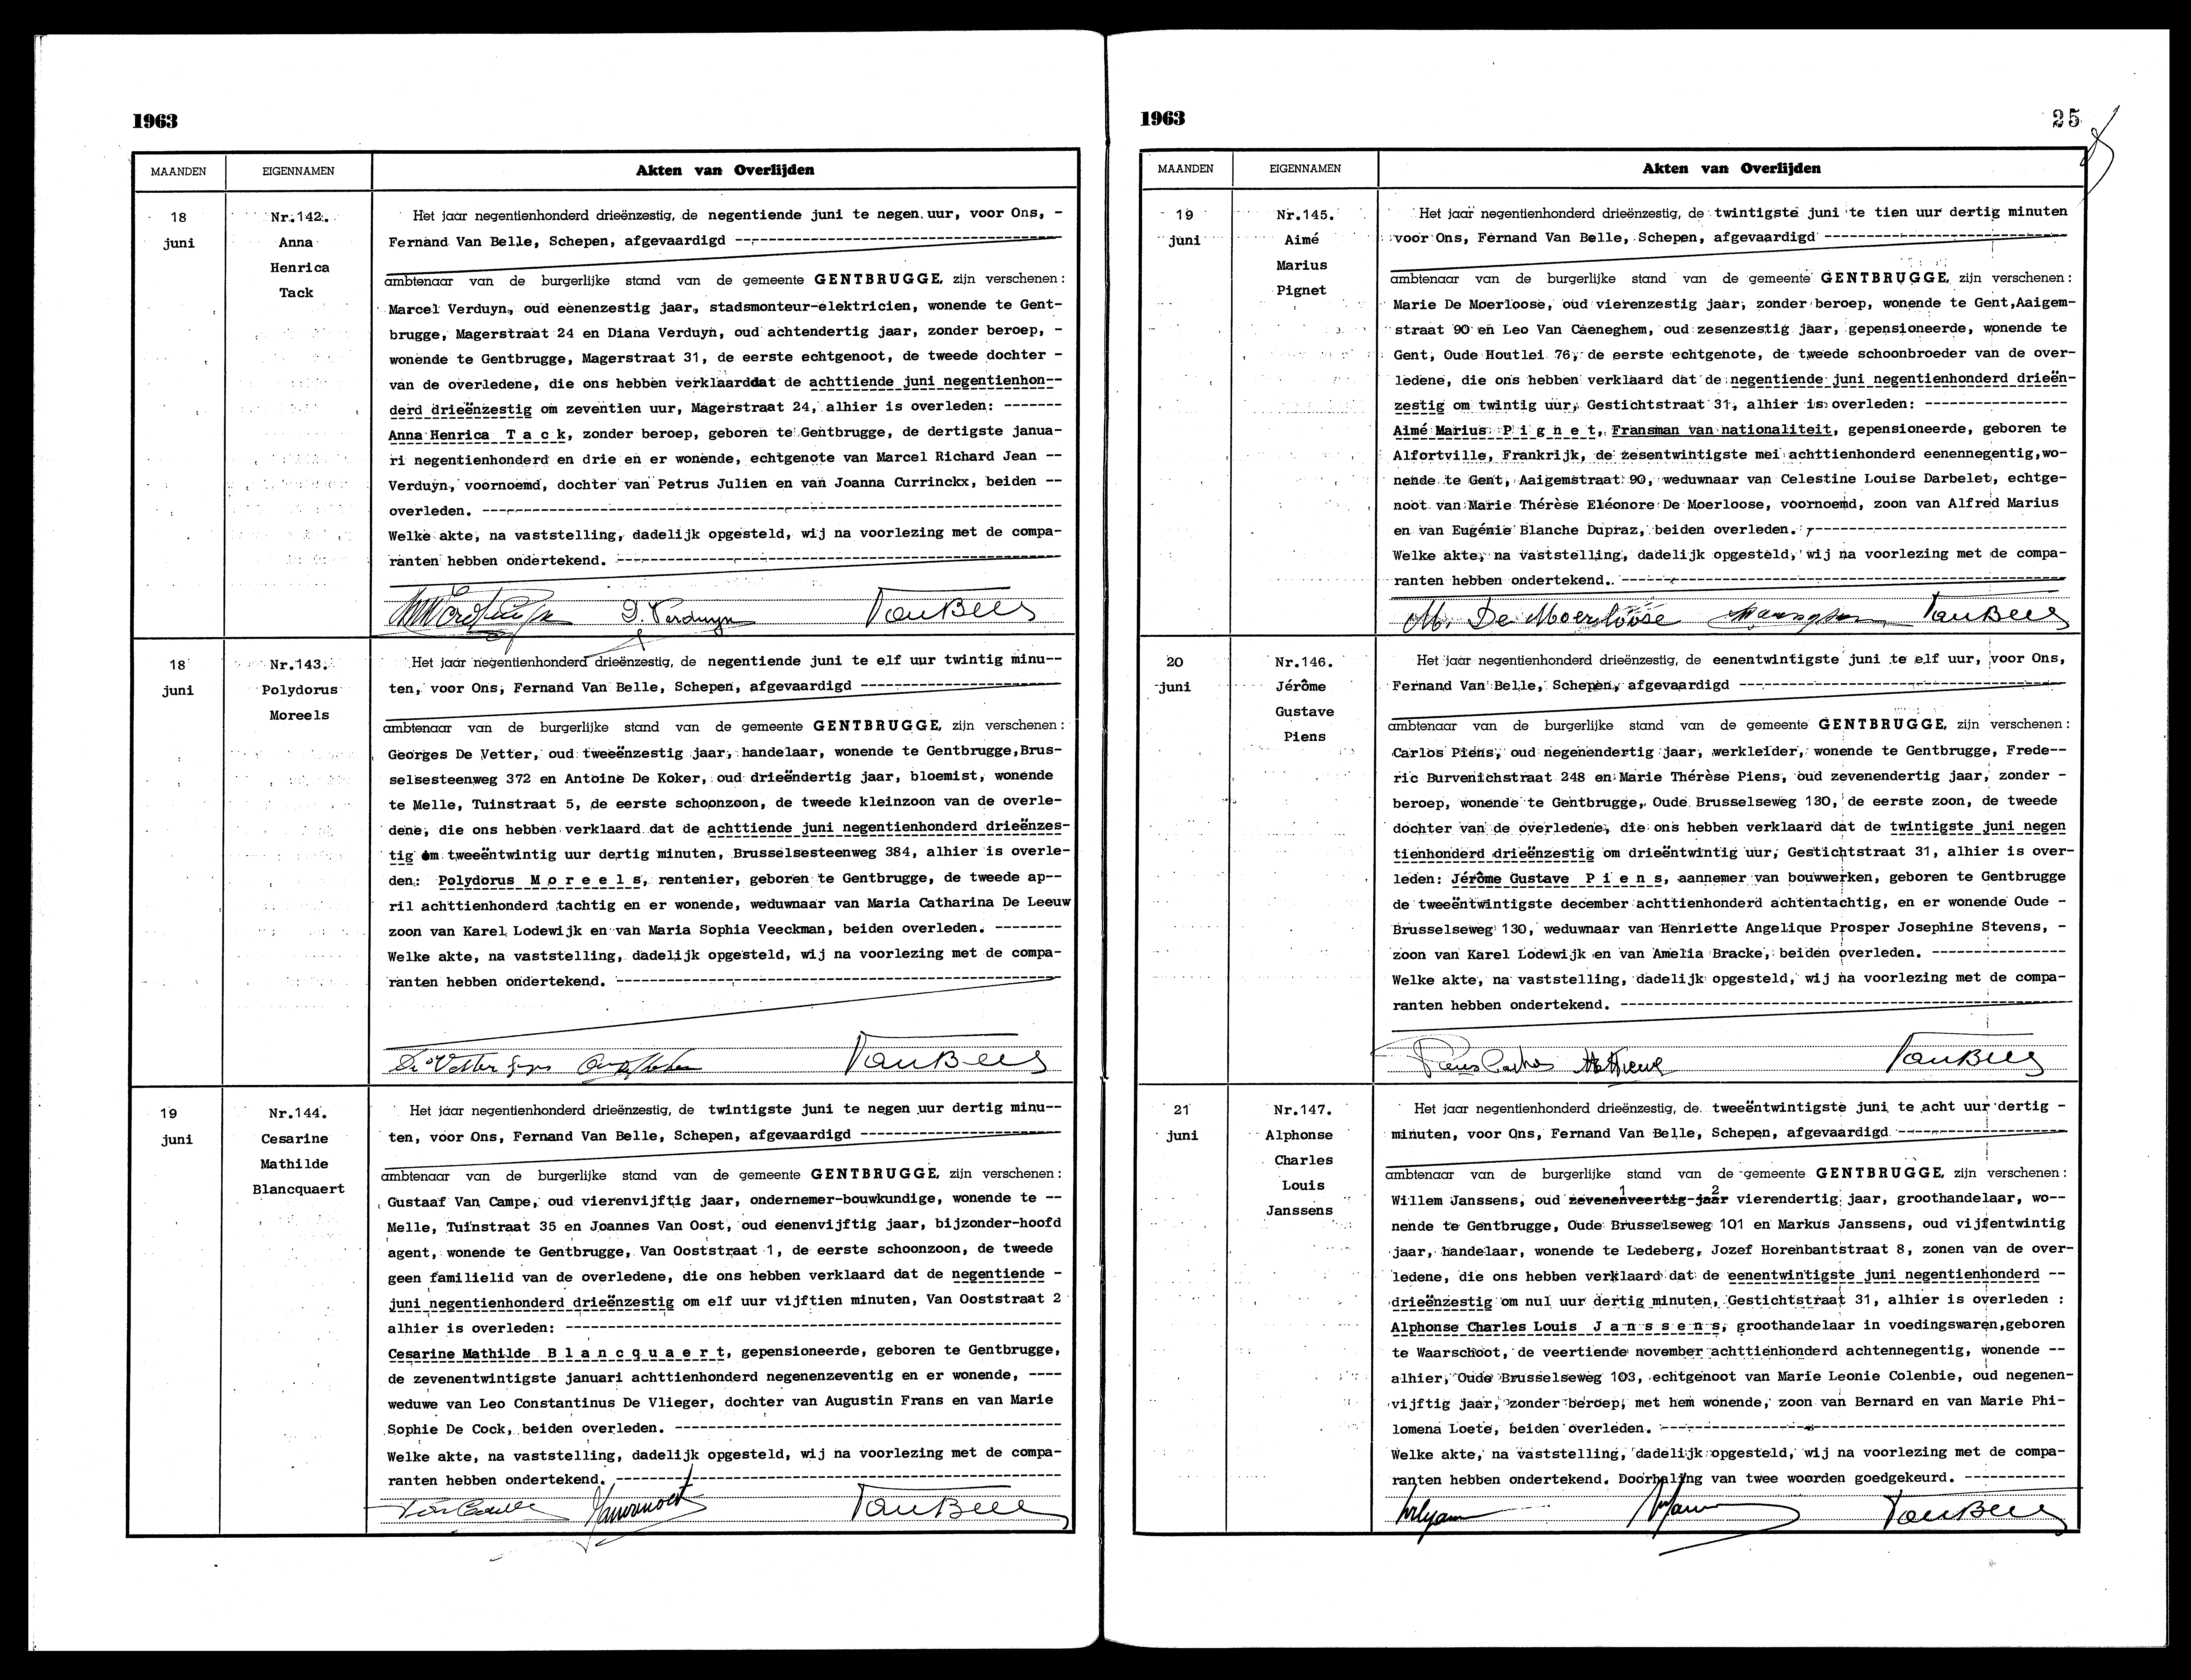 1963
MAANDEN EIGENNAMEN Akten van Overlijden
18
juni
Nr.142.
Anna
Henrica
Tack
Het jaar negentienhonderd drieënzestig, de negentiende juni te negen uur, voor Ons, -
Fernand Van Belle, Schepen, afgevaardigd ---
ambtenaar van de burgerlijke stand van de gemeente GENTBRUGGE, zijn verschenen:
Marcel Verduyn, oud eenenzestig jaar, stadsmonteur-elektricien, wonende te Gent-
brugge, Magerstraat 24 en Diana Verduyn, oud achtendertig jaar, zonder beroep, -
wonende te Gentbrugge, Magerstraat 31, de eerste echtgenoot, de tweede dochter -
van de overledene, die ons hebben verklaarddat de achttiende juni negentienhon--
derd drieënzestig om zeventien uur, Magerstraat 24, alhier is overleden: -------
Anna Henrica T a c k, zonder beroep, geboren te Gentbrugge, de dertigste janua-
ri negentienhonderd en drie en er wonende, echtgenote van Marcel Richard Jean --
Verduyn, voornoemd, dochter van Petrus Julien en van Joanna Currinckx, beiden --
overleden. ---
Welke akte, na vaststelling, dadelijk opgesteld, wij na voorlezing met de compa-
ranten hebben ondertekend. ---
D. Verduyn VanBelle
18
juni
Nr.143.
Polydorus
Moreels
Het jaar negentienhonderd drieënzestig, de negentiende juni te elf uur twintig minu--
ten, voor Ons, Fernand Van Belle, Schepen, afgevaardigd ---
ambtenaar van de burgerlijke stand van de gemeente GENTBRUGGE, zijn verschenen:
Georges De Vetter, oud tweeënzestig jaar, handelaar, wonende te Gentbrugge,Brus-
selsesteenweg 372 en Antoine De Koker, oud drieëndertig jaar, bloemist, wonende
te Melle, Tuinstraat 5, de eerste schoonzoon, de tweede kleinzoon van de overle-
dene, die ons hebben verklaard dat de achttiende juni negentienhonderd drieënzes-
tig om tweeëntwintig uur dertig minuten, Brusselsesteenweg 384, alhier is overle-
den: Polydorus M o r e e l s, rentenier, geboren te Gentbrugge, de tweede ap--
ril achttienhonderd tachtig en er wonende, weduwnaar van Maria Catharina De Leeuw
zoon van Karel Lodewijk en van Maria Sophia Veeckman, beiden overleden. --------
Welke akte, na vaststelling, dadelijk opgesteld, wij na voorlezing met de compa-
ranten hebben ondertekend. ---
De Vetter VanBelle
19
juni
Nr.144.
Cesarine
Mathilde
Blancquaert
Het jaar negentienhonderd drieënzestig, de twintigste juni te negen uur dertig minu--
ten, voor Ons, Fernand Van Belle, Schepen, afgevaardigd ---
ambtenaar van de burgerlijke stand van de gemeente GENTBRUGGE, zijn verschenen:
Gustaaf Van Campe, oud vierenvijftig jaar, ondernemer-bouwkundige, wonende te --
Melle, Tuinstraat 35 en Joannes Van Oost, oud eenenvijftig jaar, bijzonder-hoofd
agent, wonende te Gentbrugge, Van Ooststraat 1, de eerste schoonzoon, de tweede
geen familielid van de overledene, die ons hebben verklaard dat de negentiende -
juni negentienhonderd drieënzestig om elf uur vijftien minuten, Van Ooststraat 2
alhier is overleden: ---
Cesarine Mathilde B l a n c q u a e r t, gepensioneerde, geboren te Gentbrugge,
de zevenentwintigste januari achttienhonderd negenenzeventig en er wonende, ----
weduwe van Leo Constantinus De Vlieger, dochter van Augustin Frans en van Marie
Sophie De Cock, beiden overleden. ---
Welke akte, na vaststelling, dadelijk opgesteld, wij na voorlezing met de compa-
ranten hebben ondertekend. ---
VanBelle
1963 25
MAANDEN EIGENNAMEN Akten van Overlijden
19
juni
Nr.145.
Aimé
Marius
Pignet
Het jaar negentienhonderd drieënzestig, de twintigste juni te tien uur dertig minuten
voor Ons, Fernand Van Belle, Schepen, afgevaardigd ---
ambtenaar van de burgerlijke stand van de gemeente GENTBRUGGE, zijn verschenen:
Marie De Moerloose, oud vierenzestig jaar, zonder beroep, wonende te Gent,Aaigem-
straat 90 en Leo Van Caeneghem, oud zesenzestig jaar, gepensioneerde, wonende te
Gent, Oude Houtlei 76, de eerste echtgenote, de tweede schoonbroeder van de over-
ledene, die ons hebben verklaard dat de negentiende juni negentienhonderd drieën-
zestig om twintig uur, Gestichtstraat 31, alhier is overleden: ---
Aimé Marius P i g n e t, Fransman van nationaliteit, gepensioneerde, geboren te
Alfortville, Frankrijk, de zesentwintigste mei achttienhonderd eenennegentig,wo-
nende te Gent, Aaigemstraat 90, weduwnaar van Celestine Louise Darbelet, echtge-
noot van Marie Thérèse Eléonore De Moerloose, voornoemd, zoon van Alfred Marius
en van Eugénie Blanche Dupraz, beiden overleden. ---
Welke akte, na vaststelling, dadelijk opgesteld, wij na voorlezing met de compa-
ranten hebben ondertekend. ---
M. De Moerloose VanBelle
20
juni
Nr.146.
Jérôme
Gustave
Piens
Het jaar negentienhonderd drieënzestig, de eenentwintigste juni te elf uur, voor Ons,
Fernand Van Belle, Schepen, afgevaardigd ---
ambtenaar van de burgerlijke stand van de gemeente GENTBRUGGE, zijn verschenen:
Carlos Piens, oud negenendertig jaar, werkleider, wonende te Gentbrugge, Frede--
ric Burvenichstraat 248 en Marie Thérèse Piens, oud zevenendertig jaar, zonder -
beroep, wonende te Gentbrugge, Oude Brusselseweg 130, de eerste zoon, de tweede
dochter van de overledene, die ons hebben verklaard dat de twintigste juni negen
tienhonderd drieënzestig om drieëntwintig uur, Gestichtstraat 31, alhier is over-
leden: Jérôme Gustave P i e n s, aannemer van bouwwerken, geboren te Gentbrugge
de tweeëntwintigste december achttienhonderd achtentachtig, en er wonende Oude -
Brusselseweg 130, weduwnaar van Henriette Angelique Prosper Josephine Stevens, -
zoon van Karel Lodewijk en van Amelia Bracke, beiden overleden. ---
Welke akte, na vaststelling, dadelijk opgesteld, wij na voorlezing met de compa-
ranten hebben ondertekend. ---
Piens Carlos VanBelle
21
juni
Nr.147.
Alphonse
Charles
Louis
Janssens
Het jaar negentienhonderd drieënzestig, de tweeëntwintigste juni te acht uur dertig -
minuten, voor Ons, Fernand Van Belle, Schepen, afgevaardigd ---
ambtenaar van de burgerlijke stand van de gemeente GENTBRUGGE, zijn verschenen:
1 2
Willem Janssens, oud zevenenveertig jaar vierendertig jaar, groothandelaar, wo--
nende te Gentbrugge, Oude Brusselseweg 101 en Markus Janssens, oud vijfentwintig
jaar, handelaar, wonende te Ledeberg, Jozef Horenbantstraat 8, zonen van de over-
ledene, die ons hebben verklaard dat de eenentwintigste juni negentienhonderd --
drieënzestig om nul uur dertig minuten, Gestichtstraat 31, alhier is overleden :
Alphonse Charles Louis J a n s s e n s, groothandelaar in voedingswaren,geboren
te Waarschoot, de veertiende november achttienhonderd achtennegentig, wonende --
alhier, Oude Brusselseweg 103, echtgenoot van Marie Leonie Colenbie, oud negenen-
vijftig jaar, zonder beroep, met hem wonende, zoon van Bernard en van Marie Phi-
lomena Loete, beiden overleden. ---
Welke akte, na vaststelling, dadelijk opgesteld, wij na voorlezing met de compa-
ranten hebben ondertekend. Doorhaling van twee woorden goedgekeurd. ---
VanBelle